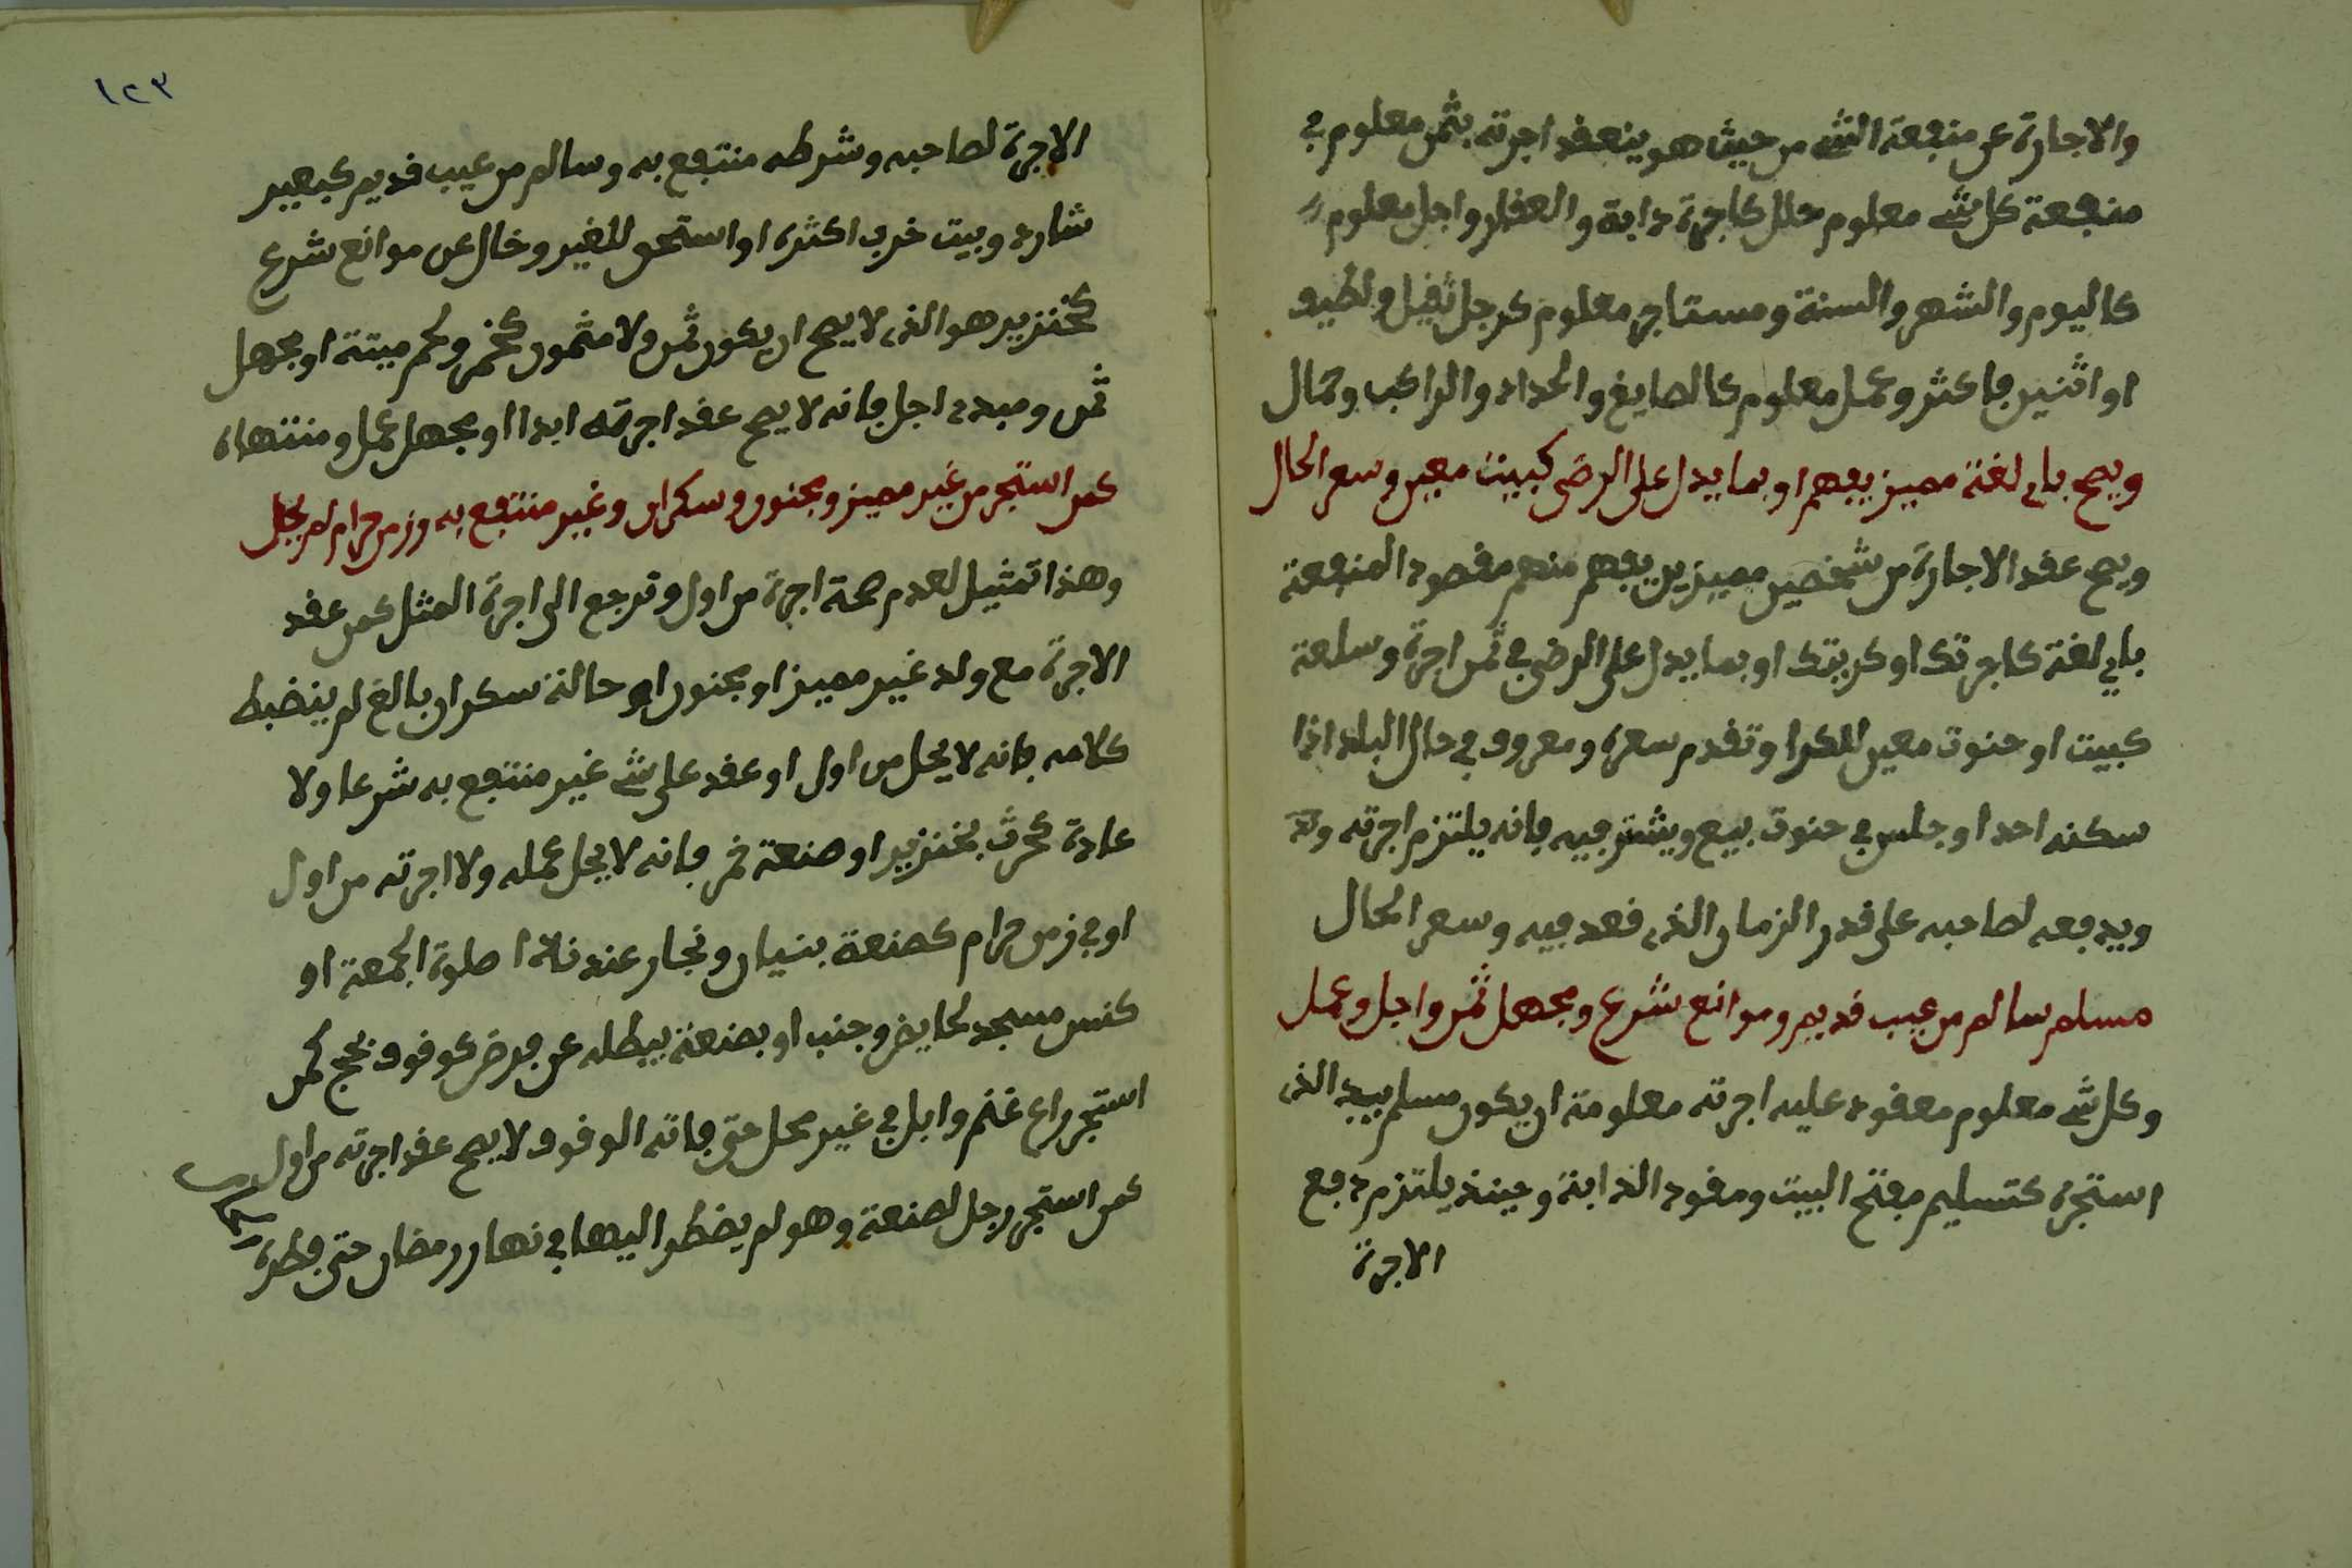 والاجارة عن منفعة الشئ من حيث هو ينعقد اجرته بثمن معلوم في
منفعة كل شئ معلوم محلل كاجرة دابة والعقار واجل معلوم
كاليوم والشهر والسنة ومستاجر معلوم كرجل ثقيل ولطيف
او اثنين فاكثر وعمل معلوم كالصايغ والحداد والراكب وحمال
ويصح باي لغة مميز يفهم او بما يدل على الرضى كبيت معين وسعر الحال
ويصح عقد الاجارة من شخصين مميزين يفهم منهم مقصود المنفعة
باي لغة كاجرتك او كريتك او بما يدل على الرضى في ثمن اجرة وسلعة
كبيت او حنوت معين للكرا وتقدم سعره ومعروف في حال البلد اذا
سكنه احد او جلس في حنوت يبيع ويشتر فيه فانه يلتزم اجرته
ويدفعه لصاحبه على قدر الزمان الذي قعد فيه وسعر الحال
مسلم سالم من عيب قديم وموانع شرع ومجهل ثمن واجل وعمل
وكل شئ معلوم معقود عليه اجرته معلومة ان يكون مسلم بيد الذي
استجره كتسليم مفتح البيت ومقود الدابة وحينذ يلتزم دفع
الاجرة
١٢٣
الاجرة لصاحبه وشرطه منتفع به وسالم من عيب قديم كبعير
شارد وبيت خرب اكثره او استحق للغير وخال عن موانع شرع
كخنزير هو الذي لا يصح ان يكون ثمن ولا مثمون كخمر ولحم ميتة او مجهل
ثمن ومبدء اجل فانه لا يصح عقد اجرته ابدا او مجهل عمل ومنتهاه
كمن استجر من غير مميز ومجنون وسكران وغير منتفع به وزمن حرام لم يحل
وهذا تمثيل لعدم صحة اجرة من اول وترجع الى اجرة المثل كمن عقد
الاجرة مع ولد غير مميز او مجنون او حالة سكران بالغ لم ينضبط
كلامه فانه لا يحل من اول او عقد على شئ غير منتفع به شرعا ولا
عادة كحرث بخنزير او صنعة خمر فانه لا يحل عمله ولا اجرته من اول
او في زمن حرام كصنعة بنيان ونجار عند ندا صلوة الجمعة او
كنس مسجد لحايض وجنب او بصنعة يبطله عن فرض كوقوف بحج كمن
استجر راع غنم وابل في غير محل حتى فاته الوقوف لا يصح عقد اجرته من اول
كمن استجر رجل لصنعة وهو لم يضطر اليها في نهار رمضان حتى فطره